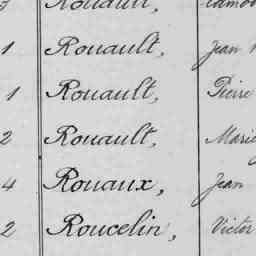 Rouault,
1 Rouault, Jean
1 Rouault, Pierre
2 Rouault, Marie
4 Rouaux, Jean
2 Roucelin, Victor